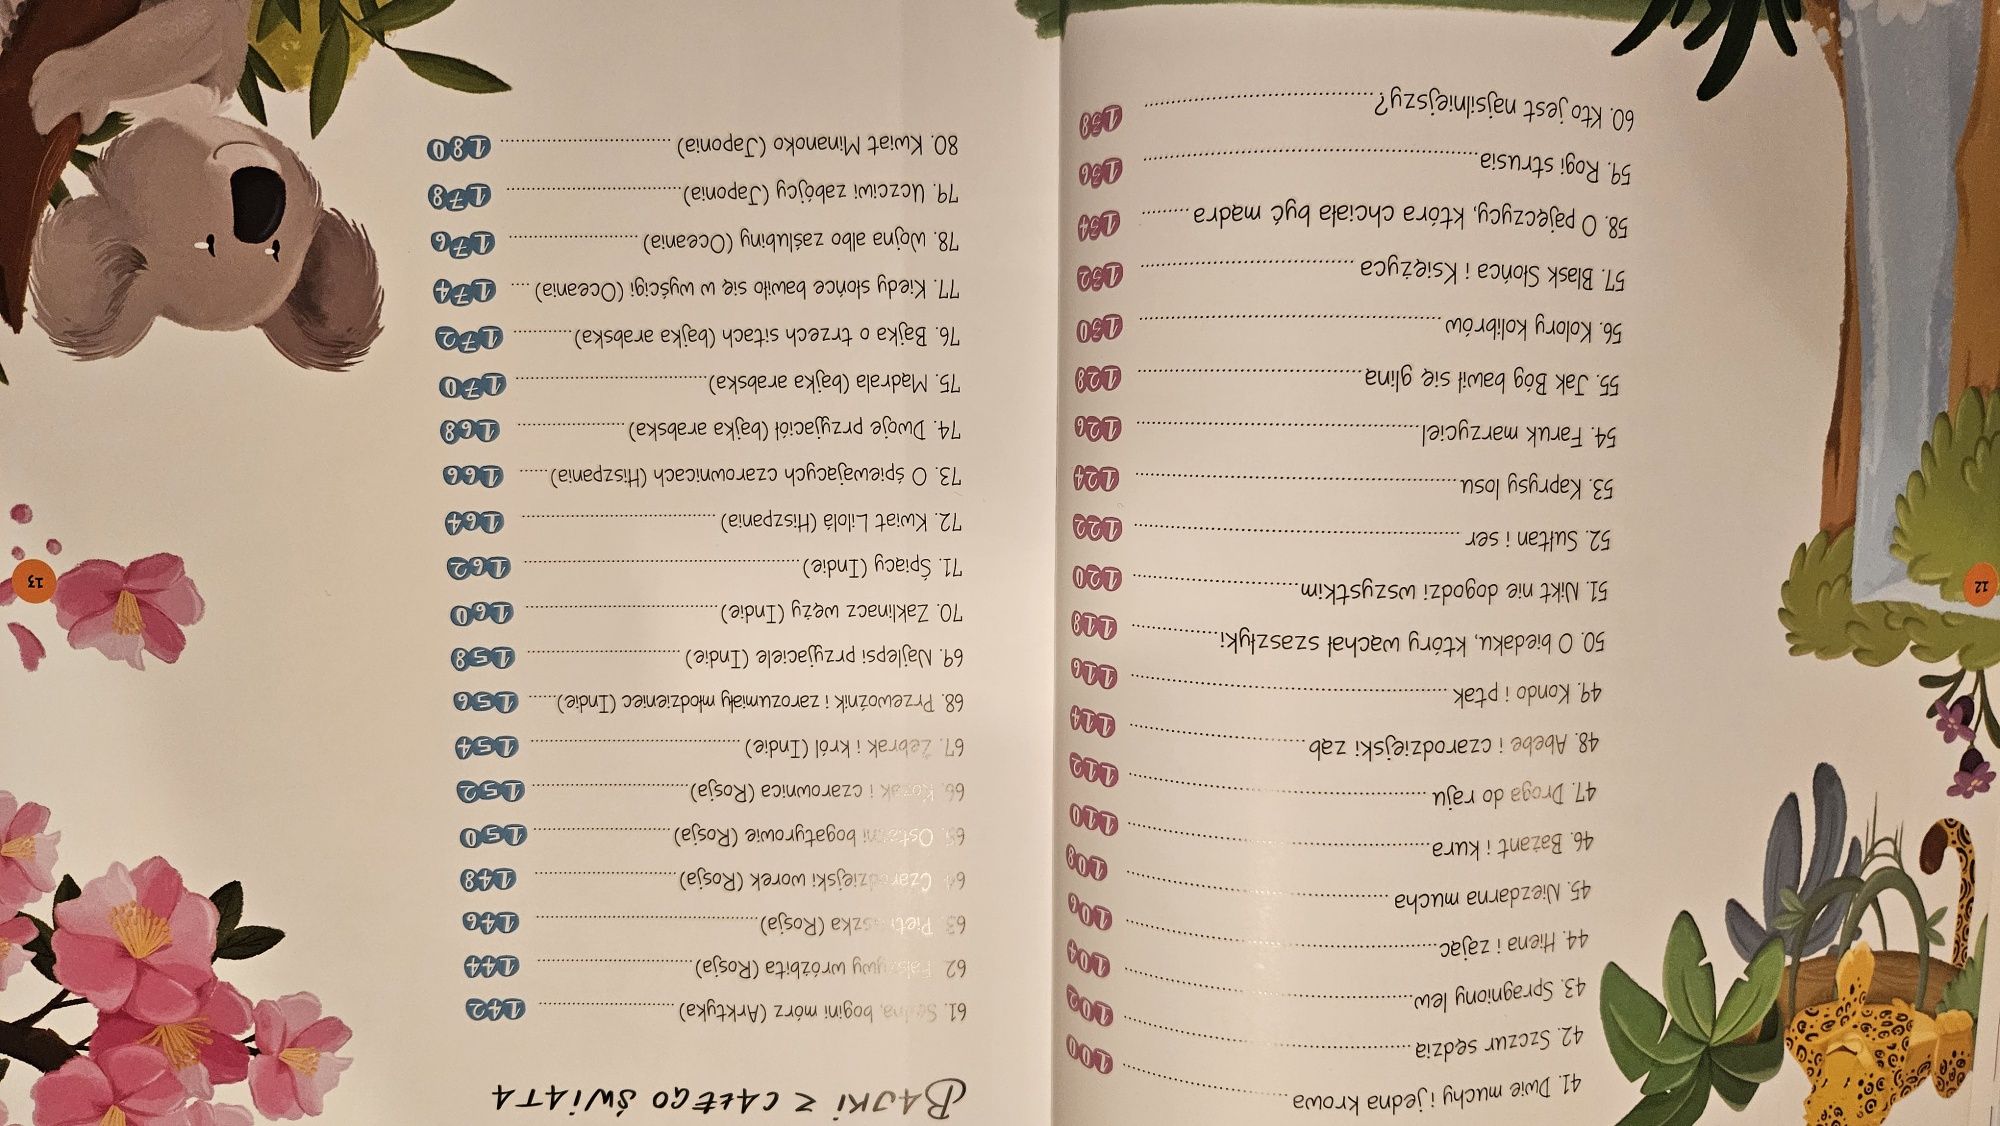 41. Dwie muchy i jedna krowa ........ 100
42. Szczur sędzia ........ 102
43. Spragniony lew ........ 104
44. Hiena i zając ........ 106
45. Niezdarna mucha ........ 108
46. Bażant i kura ........ 110
47. Droga do raju ........ 112
48. Abebe i czarodziejski ząb ........ 114
49. Kondo i ptak ........ 116
50. O biedaku, który wąchał szaszłyki ........ 118
51. Nikt nie dogodzi wszystkim ........ 120
52. Sułtan i ser ........ 122
53. Kaprysy losu ........ 124
54. Faruk marzyciel ........ 126
55. Jak Bóg bawił się gliną ........ 128
56. Kolory kolibrów ........ 130
57. Blask Słońca i Księżyca ........ 132
58. O pajęczycy, która chciała być mądra ........ 134
59. Rogi strusia ........ 136
60. Kto jest najsilniejszy? ........ 138
12
BAJKI Z CAŁEGO ŚWIATA
61. Sedna, bogini mórz (Arktyka) ........ 142
62. Fałszywy wróżbita (Rosja) ........ 144
63. Pietruszka (Rosja) ........ 146
64. Czarodziejski worek (Rosja) ........ 148
65. Ostatni bogatyrowie (Rosja) ........ 150
66. Kozak i czarownica (Rosja) ........ 152
67. Żebrak i król (Indie) ........ 154
68. Przewoźnik i zarozumiały młodzieniec (Indie) ........ 156
69. Najlepsi przyjaciele (Indie) ........ 158
70. Zaklinacz węży (Indie) ........ 160
71. Śpiący (Indie) ........ 162
72. Kwiat Lilolá (Hiszpania) ........ 164
73. O śpiewających czarownicach (Hiszpania) ........ 166
74. Dwoje przyjaciół (bajka arabska) ........ 168
75. Mądrala (bajka arabska) ........ 170
76. Bajka o trzech sitach (bajka arabska) ........ 172
77. Kiedy słońce bawiło się w wyścigi (Oceania) .... 174
78. Wojna albo zaślubiny (Oceania) ........ 176
79. Uczciwi zabójcy (Japonia) ........ 178
80. Kwiat Minanoko (Japonia) ........ 180
13